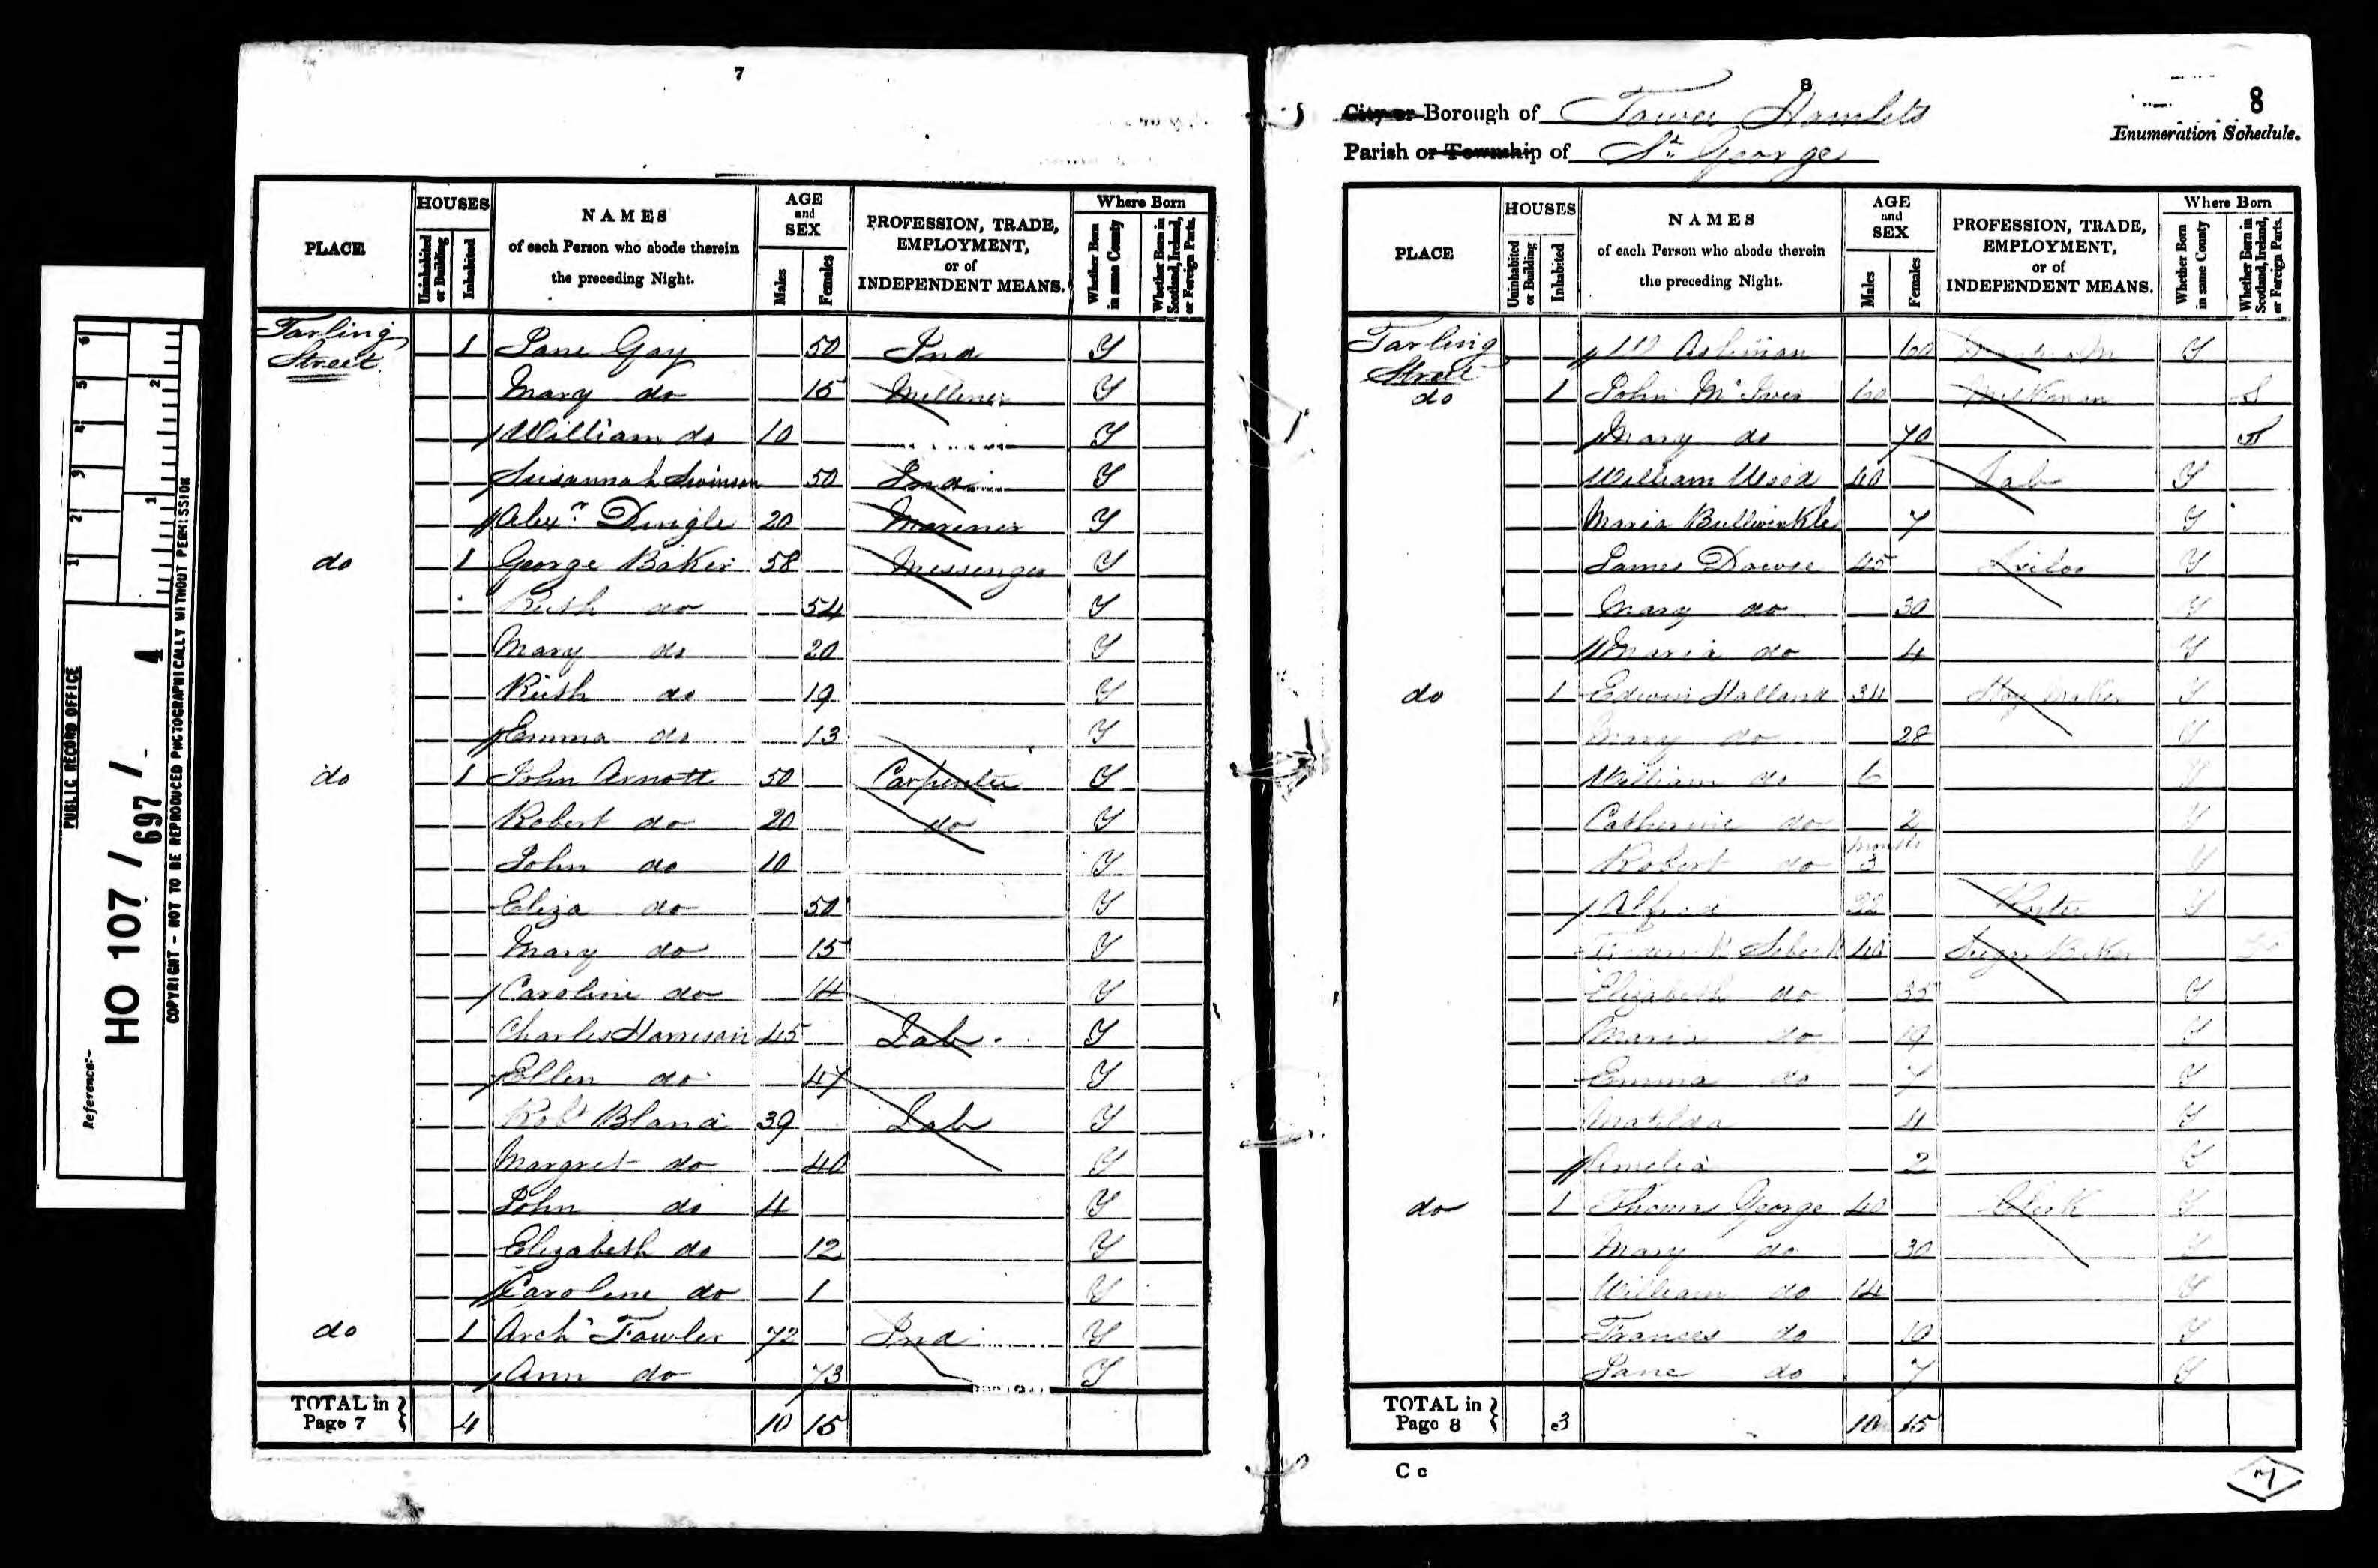 Reference:-
PUBLIC RECORD OFFICE
HO 107 / 697 / 4
COPYRIGHT - NOT TO BE REPRODUCED PHOTOGRAPHICALLY WITHOUT PERMISSION
1 2 3 4 5 6
1 2
7
PLACE
HOUSES
Uninhabited or Building
Inhabited
NAMES
of each Person who abode therein
the preceding Night.
AGE
and
SEX
Males
Females
PROFESSION, TRADE,
EMPLOYMENT,
or of
INDEPENDENT MEANS.
Where Born
Whether Born in same County
Whether Born in Scotland, Ireland, or Foreign Parts.
Tarling Street 1 Jane Gay 50 Ind Y
Mary do 15 Milliner Y
William do 10 Y
Susannah 50 Ind Y
Alexr Dingle 20 Mariner Y
do 1 George Baker 58 Messenger Y
Ruth do 54 Y
Mary do 20 Y
Ruth do 19 Y
Emma do 13 Y
do 1 John Arnott 50 Carpenter Y
Robert do 20 do Y
John do 10 Y
Eliza do 50 Y
Mary do 15 Y
Caroline do 14 Y
Charles Harrison 45 Lab Y
Ellen do 47 Y
Robt Bland 39 Lab Y
Margret do 40 Y
John do 4 Y
Elizabeth do 12 Y
Caroline do 1 Y
do 1 Archd Fowler 72 Ind Y
Ann do 73 Y
TOTAL in Page 7 4 10 15
8
City or Borough of Tower Hamlets
Parish or Township of St. George
8
Enumeration Schedule.
PLACE
HOUSES
Uninhabited or Building
Inhabited
NAMES
of each Person who abode therein
the preceding Night.
AGE
and
SEX
Males
Females
PROFESSION, TRADE,
EMPLOYMENT,
or of
INDEPENDENT MEANS.
Where Born
Whether Born in same County
Whether Born in Scotland, Ireland, or Foreign Parts.
Tarling Street 60 Y
do 1 John 60 Milkman S
Mary do 70
William Wood 40 Lab Y
Maria Bullwinkle 7 Y
James Dowse 45 Y
Mary do 30 Y
Maria do 4 Y
do 1 Edwin Halland 34 Y
Mary do 28 Y
William do 6 Y
Catherine do 2 Y
Robert do 3 months Y
Alfred 22 Porter Y
Frederick 40 Sugar Baker
Elizabeth do 35 Y
Maria do 19 Y
Emma do 7 Y
Matilda 4 Y
Amelia 2 Y
do 1 Thomas George 40 Clerk Y
Mary do 30 Y
William do 14 Y
Frances do 10 Y
Jane do 7 Y
TOTAL in Page 8 3 10 15
C c
7